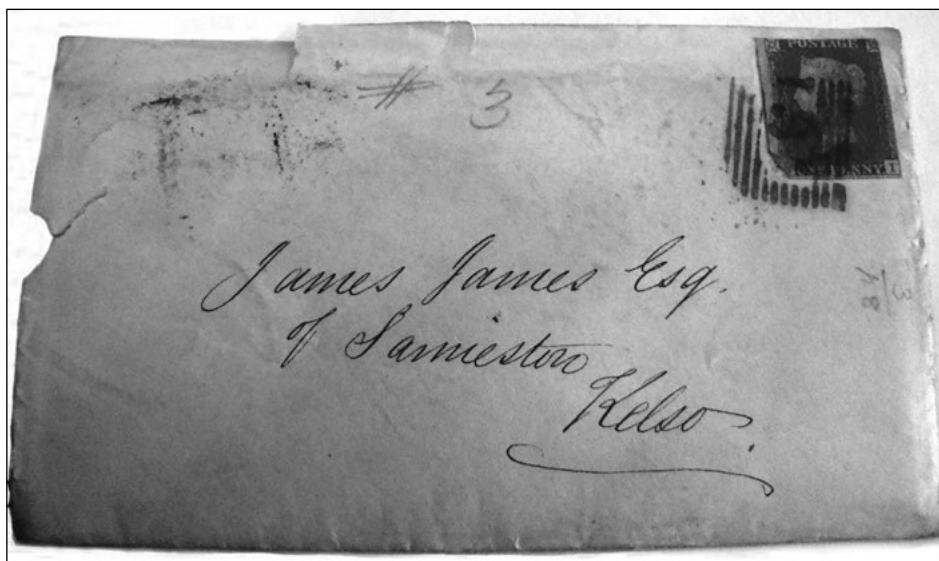 POSTAGE
# 3
ONE PENNY I
James James Esq.
of Samieston
Kelso.
3
48